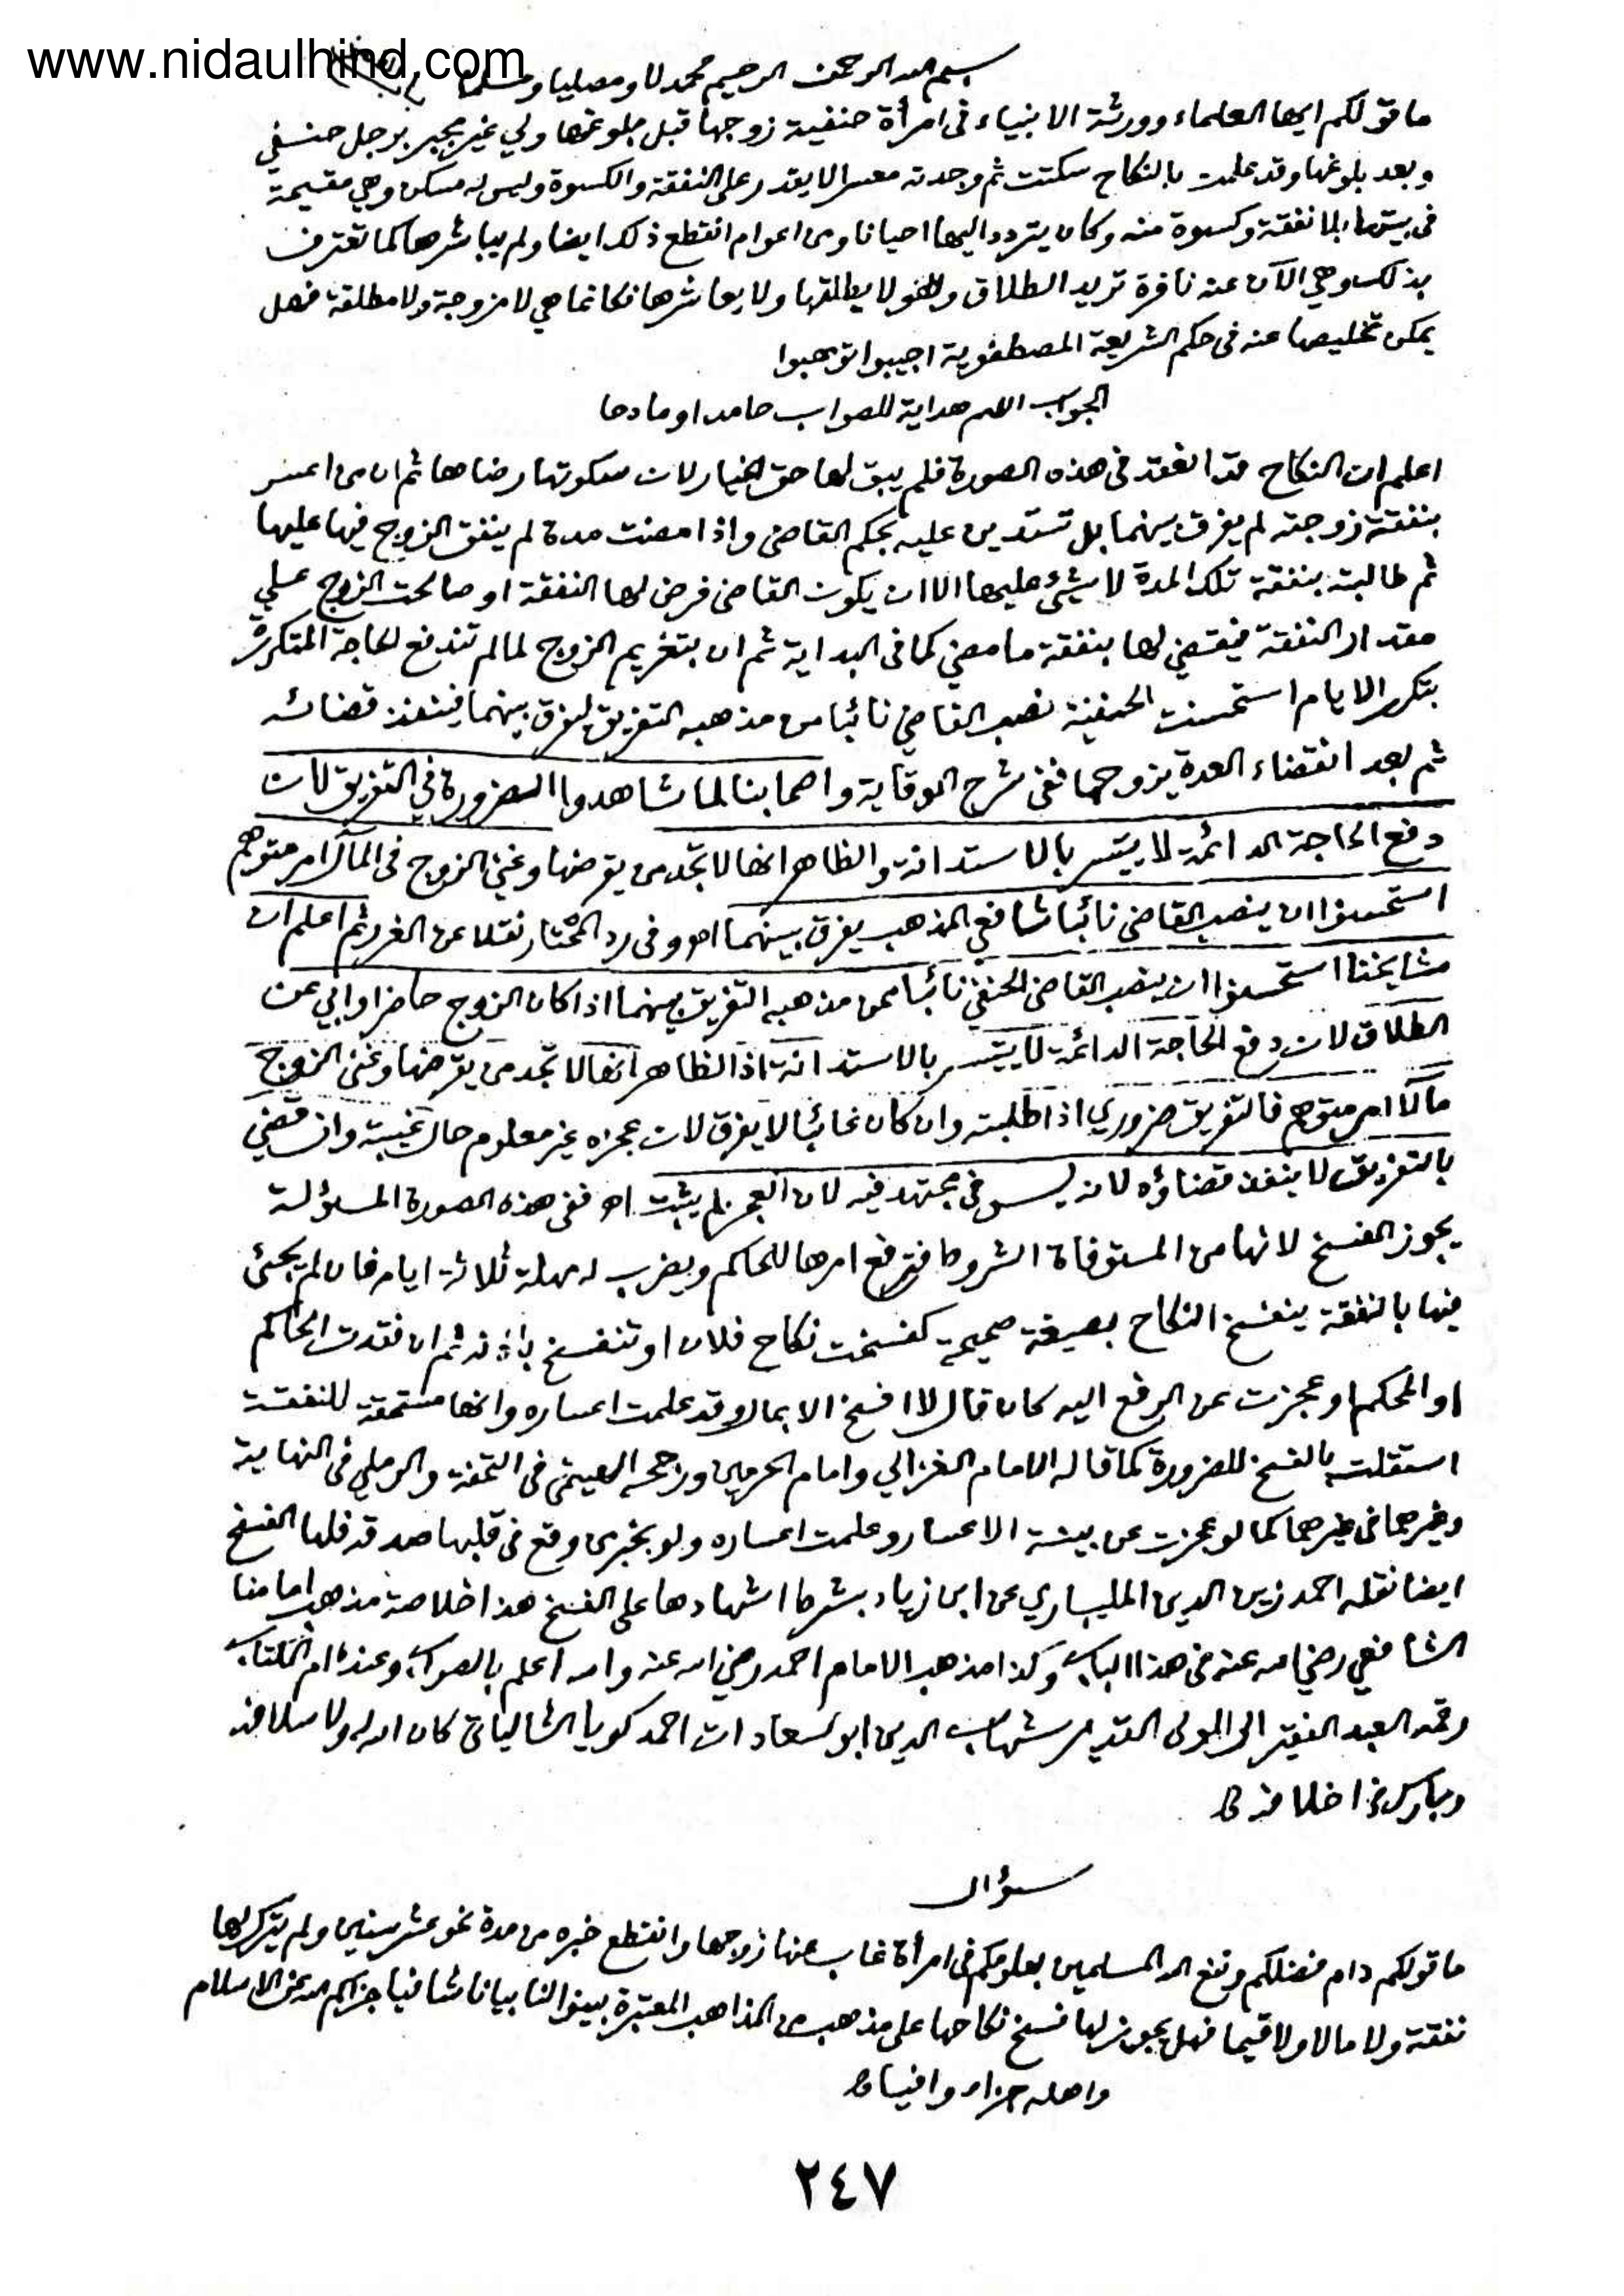 www.nidaulhind.com
بسم الله الرحمن الرحيم محمدلا ومصليا ومسلما
ما قولكم ايها العلماء وورثة الانبياء فى امرأة حنفية زوجها قبل بلوغها ولي غير مجبر برجل حنفي
وبعد بلوغها وقد علمت بالنكاح سكتت ثم وجدته معسرا لا يقدر على النفقة والكسوة وليس له مسكن وهي مقيمة
فى بيتها بلا نفقة وكسوة منه وكان يتردد اليها احيانا ومن اعوام انقطع ذلك ايضا ولم يباشرها كما تعترف
بذلك وهي الآن عنه نافرة تريد الطلاق وهو لا يطلقها ولا يعاشرها فكانما هي لا مزوجة ولا مطلقة فهل
يمكن تخليصها عنه فى حكم الشريعة المصطفوية اجيبوا توهبوا
الجواب اللهم هداية للصواب حامدا ومادحا
اعلم ان النكاح قد انعقد فى هذه الصورة فلم يبق لها حق الخيار لان سكوتها رضاها ثم ان من اعسر
بنفقة زوجته لم يفرق بينهما بل تستدين عليه بحكم القاضى واذا مضت مدة لم ينفق الزوج فيها عليها
ثم طالبته بنفقة تلك المدة لا شيئ عليها الا ان يكون القاضى فرض لها النفقة او صالحت الزوج على
مقدار النفقة فيقضي لها بنفقة ما مضي كما فى البداية ثم ان بتغريم الزوج لما لم تندفع الحاجة المتكررة
بتكرر الايام استحسنت الحنفية نصب القاضي نائبا من مذهبه التفريق ليفرق بينهما فينفذ قضائه
ثم بعد انقضاء العدة يزوجها ففى شرح الوقاية واصحابنا لما شاهدوا الضرورة في التفريق لان
دفع الحاجة الدائمة لا يتيسر بالاستدانة والظاهر انها لا تجد من يقرضها وغني الزوج فى المآل امر متوهم
استحسنوا ان ينصب القاضى نائبا شافعي المذهب يفرق بينهما اه وفى رد المحتار نقلا عن الغرر ثم اعلم ان
مشايخنا استحسنوا ان ينصب القاضى الحنفي نائبا ممن مذهبه التفريق بينهما اذا كان الزوج حاضرا وابي عن
الطلاق لان دفع الحاجة الدائمة لا يتيسر بالاستدانة اذ الظاهر انها لا تجد من يقرضها وغنى الزوج
مآلا امر متوهم فالتفريق ضروري اذا طلبته وان كان غائبا لا يفرق لان عجزه غير معلوم حال غيبته وان قضي
بالتفريق لا ينفذ قضاؤه لانه ليس فى مجتهد فيه لان العجز لم يثبت اه ففى هذه الصورة المسؤلة
يجوز الفسخ لانها من المستوفاة الشروط فترفع امرها للحاكم ويضرب له مهلة ثلاثة ايام فان لم يجئ
فيها بالنفقة ينفسخ النكاح بصيغة صحيحة كفسخت نكاح فلان او تنفسخ باذنه ثم ان فقدت الحاكم
او المحكم او عجزت عن الرفع اليه كان قال لا افسخ الا بمال وقد علمت اعساره وانها مستحقة للنفقة
استقلت بالفسخ للضرورة كما قاله الامام الغزالي وامام الحرمين ورجحه الهيتمى فى التحفة والرملي فى النهاية
وغيرهما فى غيرهما كما لو عجزت عن بينة الاعسار وعلمت اعساره ولو بخبر من وقع فى قلبها صدقه فلها الفسخ
ايضا نقله احمد زين الدين المليباري عن ابن زياد بشرط اشهادها على الفسخ هذا خلاصة مذهب امامنا
الشافعي رضي الله عنه فى هذا الباب وكذا مذهب الامام احمد رضي الله عنه والله اعلم بالصواب وعنده ام الكتاب
رقمه العبد الفقير الى المولى القدير شهاب الدين ابو السعادات احمد كويا الشالياتى كان الله له ولاسلافه
وبارك فى اخلافه
سؤال
ما قولكم دام فضلكم ونفع الله المسلمين بعلومكم فى امرأة غاب عنها زوجها وانقطع خبره من مدة نحو عشر سنين ولم يترك لها
نفقة ولا مالا ولا قيما فهل يجوز لها فسخ نكاحها على مذهب من المذاهب المعتبرة بينوا لنا بيانا شافيا جزاكم الله عن الاسلام
واهله جزاء وافيا
٢٤٧